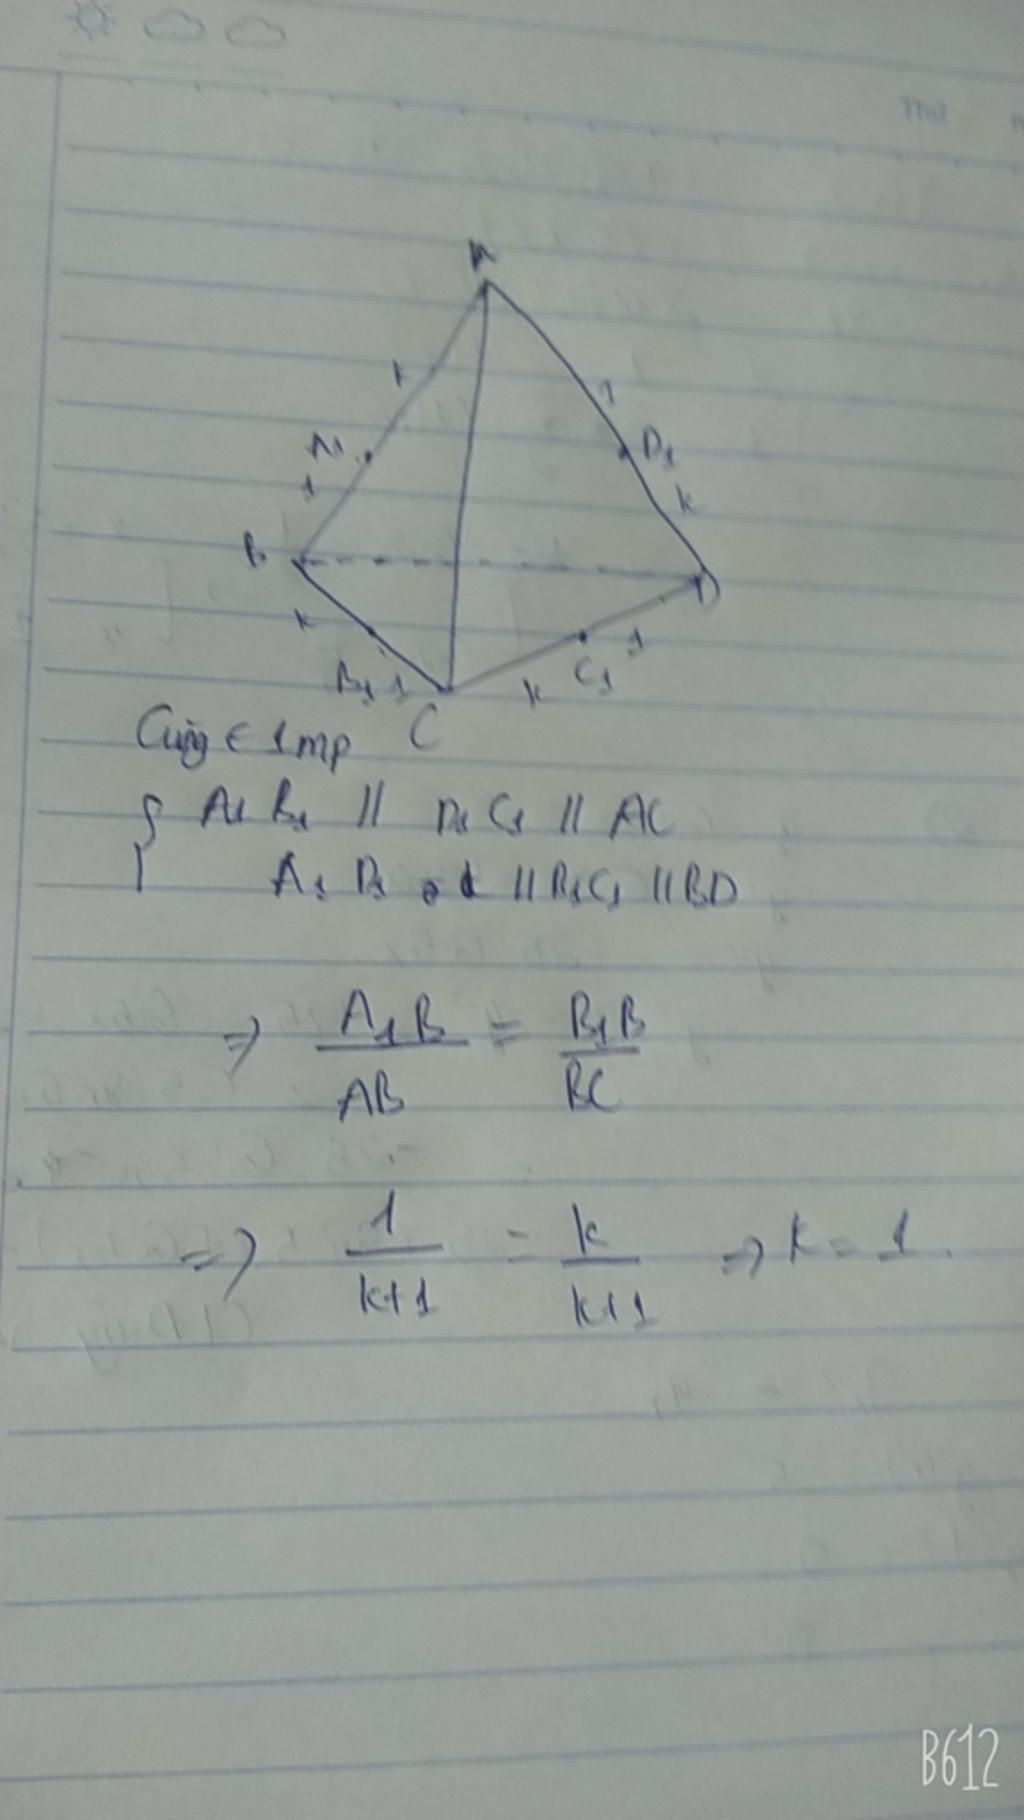 Thứ
A
k
1
A1
D1
1
k
B
D
k
1
B1 1
k
C1
C
Cùng ∈ 1 mp
{ A1 B1 // D1 C1 // AC
A1 D1 // B1C1 // BD
=> A1B / AB = B1B / BC
=> 1 / k+1 = k / k+1 => k = 1.
B612